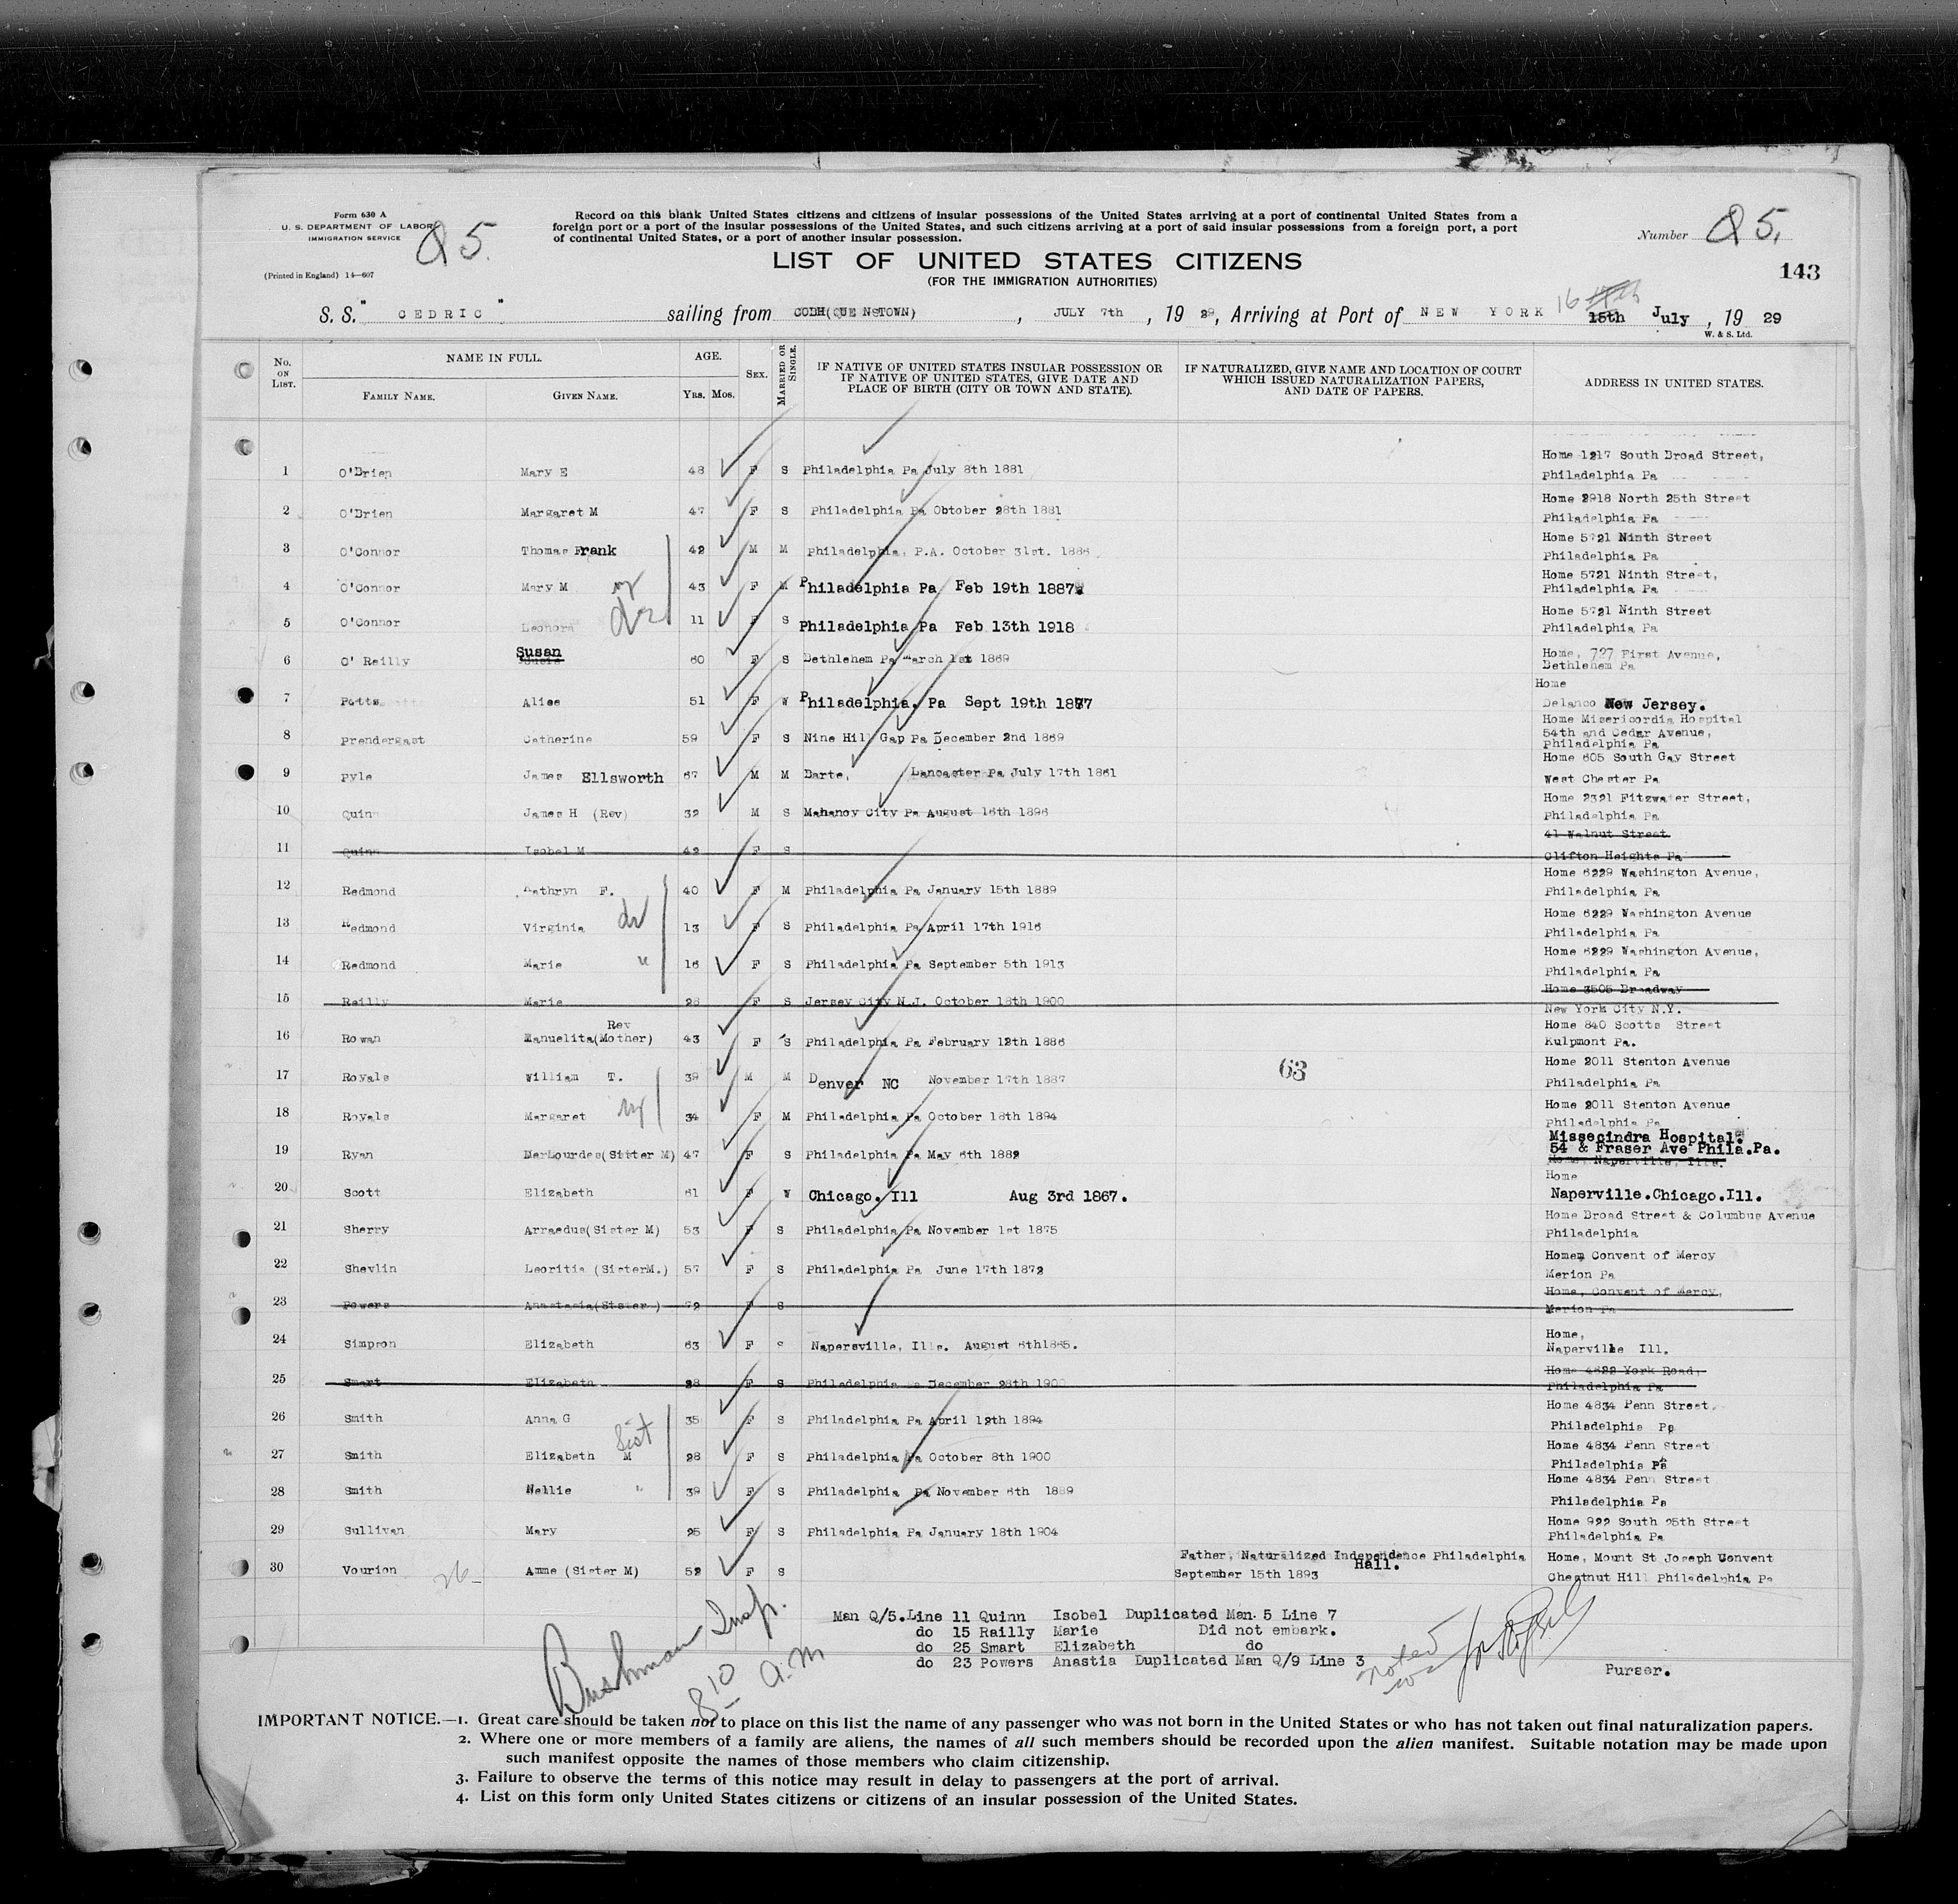 Form 630 A
U. S. DEPARTMENT OF LABOR
IMMIGRATION SERVICE
(Printed in England) 14—607
Q 5.
Record on this blank United States citizens and citizens of insular possessions of the United States arriving at a port of continental United States from a
foreign port or a port of the insular possessions of the United States, and such citizens arriving at a port of said insular possessions from a foreign port, a port
of continental United States, or a port of another insular possession.
Number Q 5.
LIST OF UNITED STATES CITIZENS
(FOR THE IMMIGRATION AUTHORITIES)
143
S. S. " CEDRIC " sailing from COBH(QUEENSTOWN) , JULY 7th , 19 29, Arriving at Port of NEW YORK 16 15th July , 19 29
W. & S. Ltd.
No. ON LIST. NAME IN FULL. AGE. SEX. MARRIED OR SINGLE. IF NATIVE OF UNITED STATES INSULAR POSSESSION OR IF NATIVE OF UNITED STATES, GIVE DATE AND PLACE OF BIRTH (CITY OR TOWN AND STATE). IF NATURALIZED, GIVE NAME AND LOCATION OF COURT WHICH ISSUED NATURALIZATION PAPERS, AND DATE OF PAPERS. ADDRESS IN UNITED STATES.
FAMILY NAME. GIVEN NAME. YRS. MOS.
1 O'Brien Mary E 48 F S Philadelphia Pa July 8th 1881 Home 1217 South Broad Street, Philadelphia Pa
2 O'Brien Margaret M 47 F S Philadelphia Pa Obtober 28th 1881 Home 2918 North 25th Street Philadelphia Pa
3 O'Connor Thomas Frank 42 M M Philadelphia, P.A. October 31st. 1886 Home 5721 Ninth Street Philadelphia Pa
4 O'Connor Mary M 43 F M Philadelphia Pa Feb 19th 1887. Home 5721 Ninth Street, Philadelphia Pa
5 O'Connor Leonora 11 F S Philadelphia Pa Feb 13th 1918 Home 5721 Ninth Street Philadelphia Pa
6 O' Reilly Susan 60 F S Bethlehem Pa March 1st 1869 Home, 727 First Avenue, Bethlehem Pa
7 Potts Alice 51 F W Philadelphia. Pa Sept 19th 1877 Home Delanco New Jersey.
8 Prendergast Catherine 59 F S Nine Hill Gap Pa December 2nd 1869 Home Misericordia Hospital 54th and Cedar Avenue, Philadelphia Pa
9 Pyle James Ellsworth 67 M M Barte, Lancaster Pa July 17th 1861 Home 605 South Gay Street West Chester Pa
10 Quinn James H (Rev) 32 M S Mahanoy City Pa August 16th 1896 Home 2321 Fitzwater Street, Philadelphia Pa
11 Quinn Isobel M 42 F S 41 Walnut Street Clifton Heights Pa
12 Redmond Kathryn F. 40 F M Philadelphia Pa January 15th 1889 Home 6229 Washington Avenue, Philadelphia Pa
13 Redmond Virginia 13 F S Philadelphia Pa April 17th 1916 Home 6229 Washington Avenue Philadelphia Pa
14 Redmond Marie 16 F S Philadelphia Pa September 5th 1913 Home 6229 Washington Avenue, Philadelphia Pa
15 Reilly Marie 28 F S Jersey City N.J. October 18th 1900 Home 3505 Broadway New York City N.Y.
16 Rowan Manuelita(Rev Mother) 43 F S Philadelphia Pa February 12th 1886 Home 840 Scotts Street Kulpmont Pa.
17 Royals William T. 39 M M Denver NC November 17th 1887 63 Home 2011 Stenton Avenue Philadelphia Pa
18 Royals Margaret 34 F M Philadelphia Pa October 18th 1894 Home 2011 Stenton Avenue Philadelphia Pa
19 Ryan MerLourdes(Sister M) 47 F S Philadelphia Pa May 6th 1882 Missecindra Hospital. 54 & Fraser Ave Phila.Pa. Home, Naperville, Ills.
20 Scott Elizabeth 61 F W Chicago. Ill Aug 3rd 1867. Home Naperville.Chicago.Ill.
21 Sherry Arraedus(Sister M) 53 F S Philadelphia Pa November 1st 1875 Home Broad Street & Columbus Avenue Philadelphia
22 Shevlin Leoritia (SisterM.) 57 F S Philadelphia Pa June 17th 1872 Home Convent of Mercy Merion Pa
23 Powers Anastasia(Sister ) 72 F S Home, Convent of Mercy, Merion Pa
24 Simpson Elizabeth 63 F S Napersville, Ills. August 6th1865. Home, Naperville Ill.
25 Smart Elizabeth 28 F S Philadelphia Pa December 28th 1900 Home 4622 York Road, Philadelphia Pa
26 Smith Anna G 35 F S Philadelphia Pa April 12th 1894 Home 4834 Penn Street, Philadelphia Pa
27 Smith Elizabeth M Sist 28 F S Philadelphia Pa October 8th 1900 Home 4834 Penn Street Philadelphia Pa
28 Smith Nellie " 39 F S Philadelphia Pa November 6th 1889 Home 4834 Penn Street Philadelphia Pa
29 Sullivan Mary 25 F S Philadelphia Pa January 18th 1904 Home 922 South 25th Street Philadelphia Pa
30 Vourion Amme (Sister M) 52 F S Father, Naturalized Independence Hall. Philadelphia September 15th 1893 Home, Mount St Joseph Convent Chestnut Hill Philadelphia Pa
26
Man Q/5.Line 11 Quinn Isobel Duplicated Man. 5 Line 7
do 15 Railly Marie Did not embark.
do 25 Smart Elizabeth do
do 23 Powers Anastia Duplicated Man Q/9 Line 3
Bushman Insp.
8 10 a.m
noted
Purser.
IMPORTANT NOTICE.—1. Great care should be taken not to place on this list the name of any passenger who was not born in the United States or who has not taken out final naturalization papers.
2. Where one or more members of a family are aliens, the names of all such members should be recorded upon the alien manifest. Suitable notation may be made upon
such manifest opposite the names of those members who claim citizenship.
3. Failure to observe the terms of this notice may result in delay to passengers at the port of arrival.
4. List on this form only United States citizens or citizens of an insular possession of the United States.